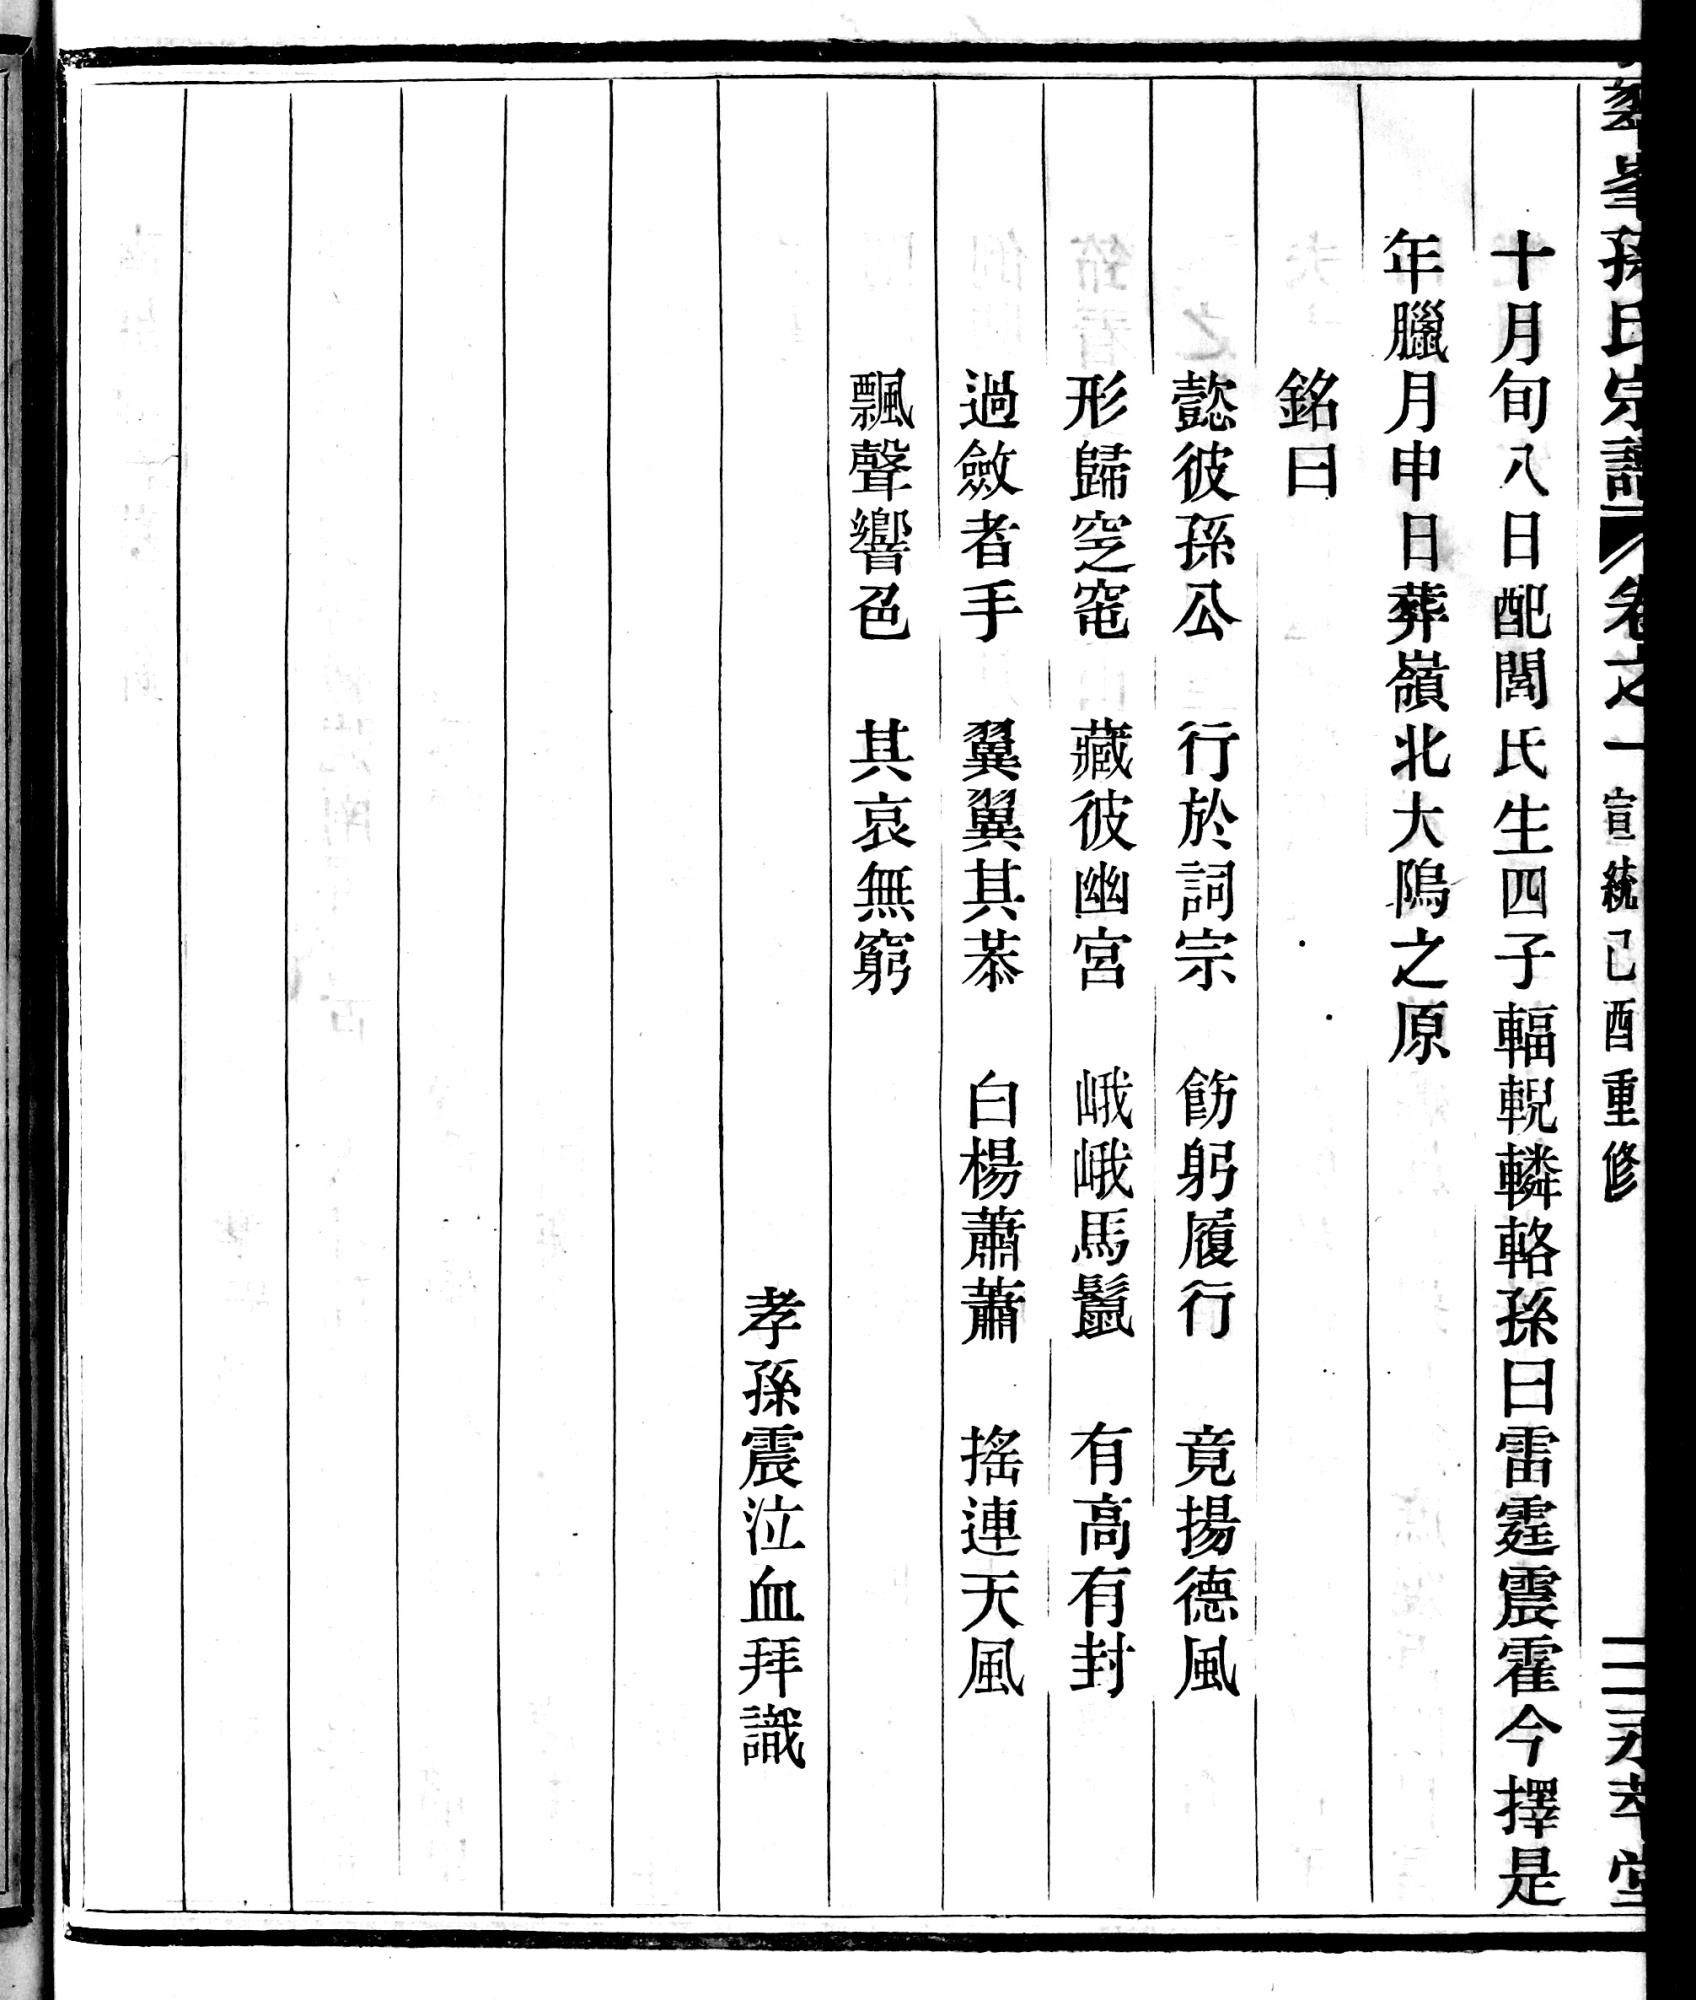 孫氏宗譜 卷之一 宣統己酉重修 二 永萃堂
十月旬八日配閻氏生四子輻輗轔輅孫曰雷霆震霍今擇是
年臘月申日葬嶺北大隝之原
銘曰
懿彼孫公 行於詞宗 飭躬履行 竟揚德風
形歸窆窀 藏彼幽宮 峨峨馬鬣 有高有封
過斂者手 翼翼其恭 白楊蕭蕭 搖連天風
飄聲響色 其哀無窮
孝孫震泣血拜識